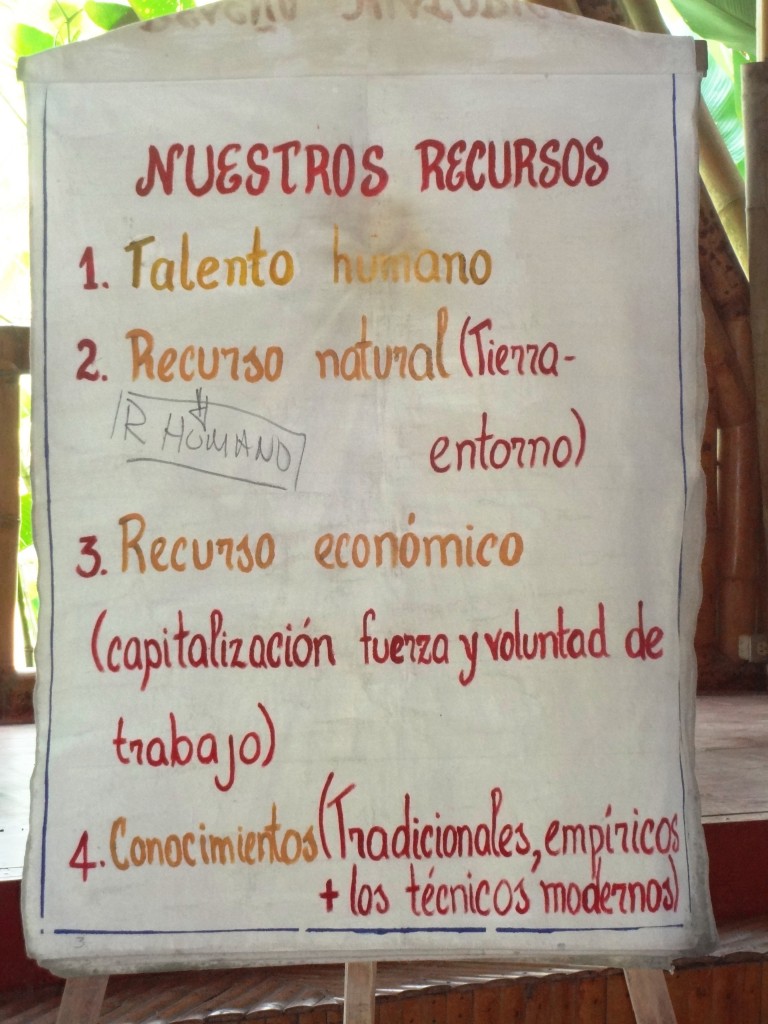 NUESTROS RECURSOS
1. Talento humano
2. Recurso natural (Tierra-
R HUMANO
entorno)
3. Recurso económico
(capitalización fuerza y voluntad de
trabajo)
4. Conocimientos (Tradicionales, empíricos
+ los técnicos modernos)
3